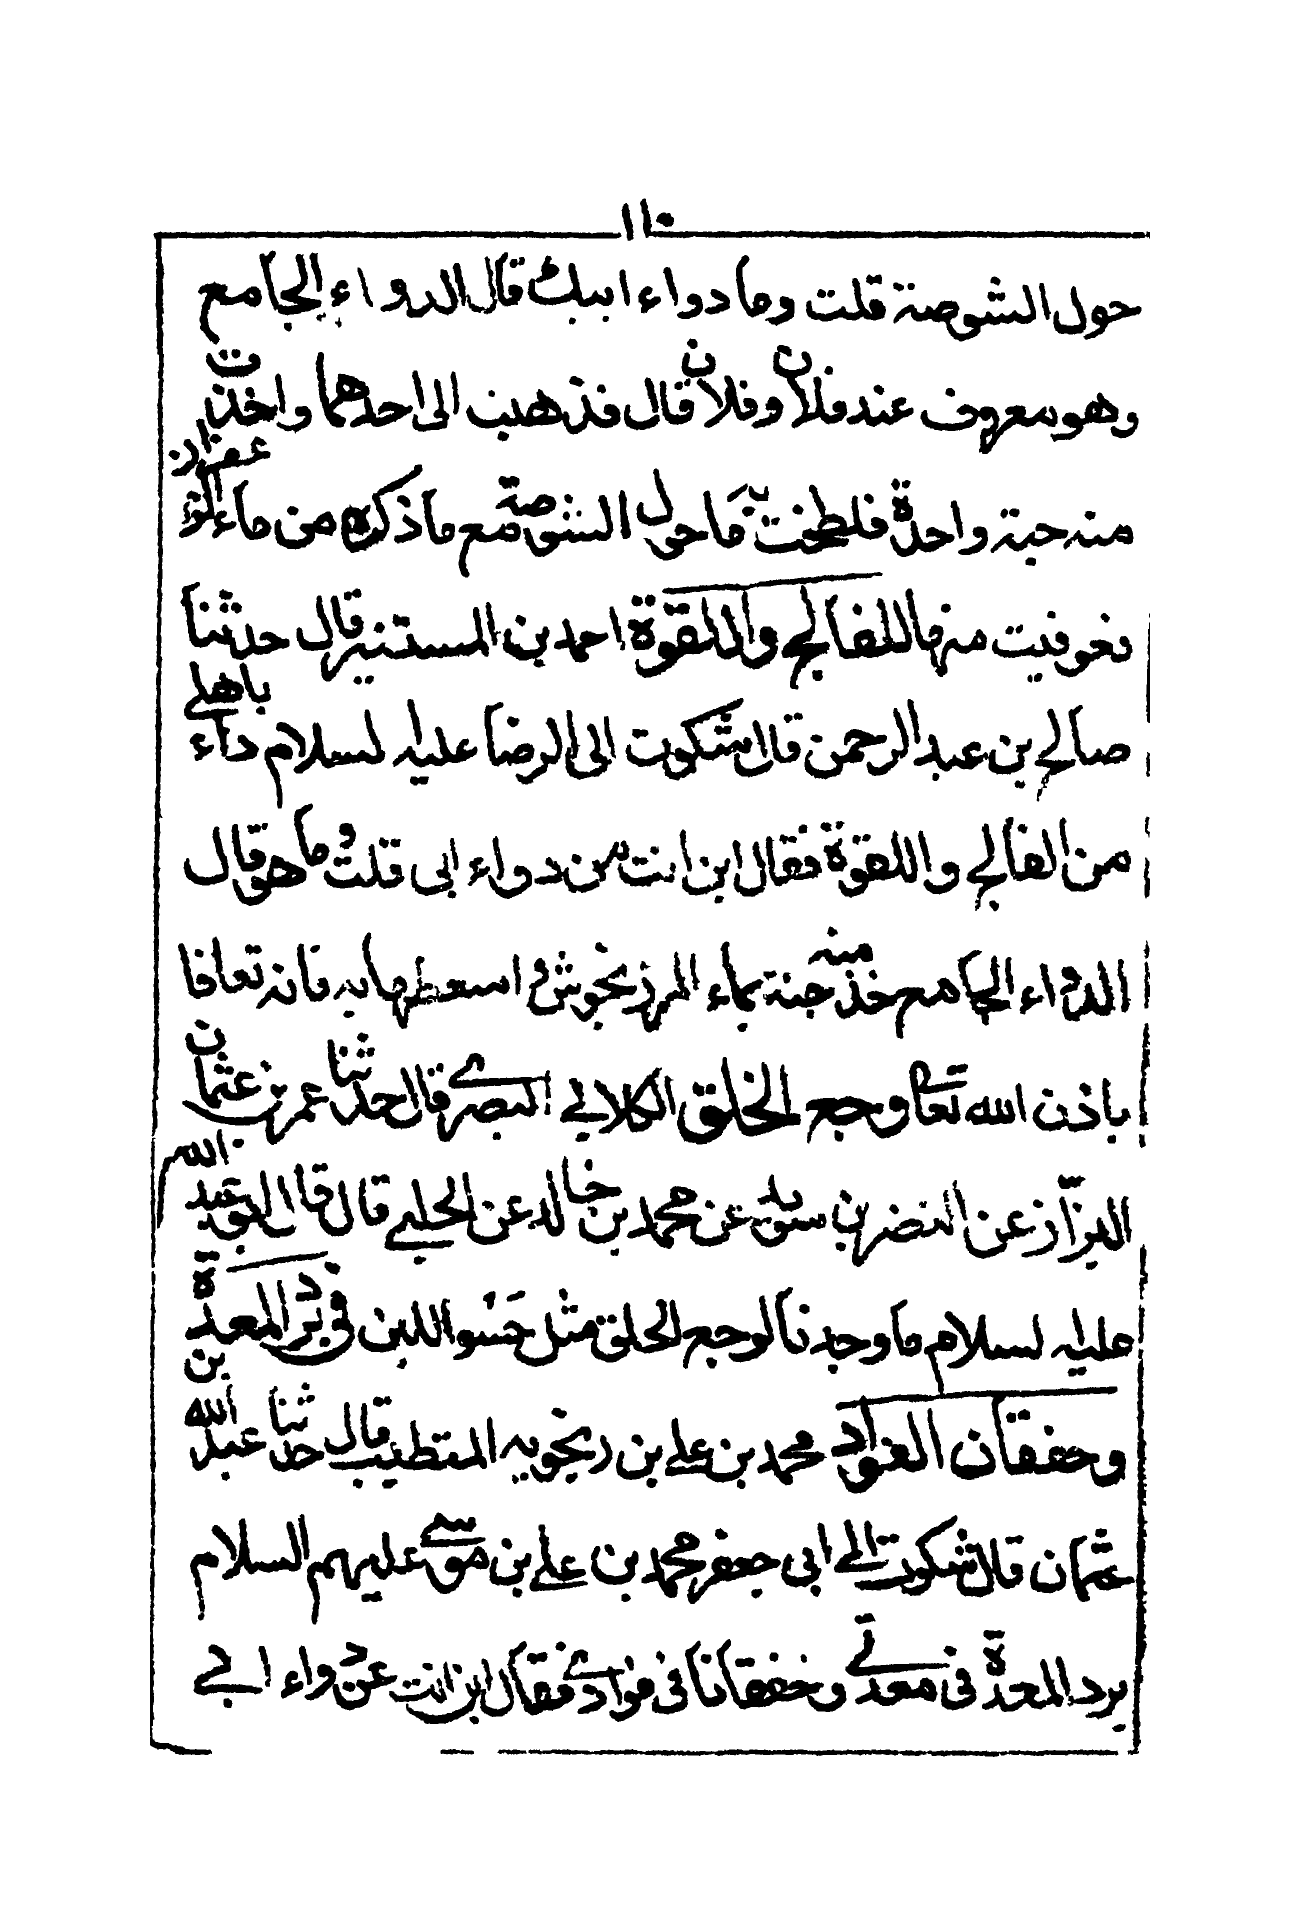 ١١٠
حول الشوصة قلت وما دواء ابيك قال الدواء الجامع
وهو معروف عند فلان وفلان قال فذهبت الى احدهما واخذت
منه حبة واحدة فلطخت به ما حول الشوصة مع ما ذكره من ماء الزعفران
فعوفيت منها للفالج واللقوة احمد بن المستنير قال حدثنا
صالح بن عبد الرحمن قال شكوت الى الرضا عليه لسلام داء باهلي
من الفالج واللقوة فقال اين انت من دواء ابى قلت وما هو قال
الدواء الجامع خذ منه حبة بماء المرزنجوش واسعطها به فانه تعافا
باذن الله تعالى وجع الخلق الكلابي البصرى قال حدثنا عمر بن عثمان
البزاز عن النضر بن سويد عن محمد بن خالد عن الحلبي قال قال ابو عبد الله
عليه لسلام ما وجدنا لوجع الحلق مثل حسو اللبن في برد المعدة
وخفقان الفواد محمد بن علي بن رنجويه المتطبب قال حدثنا عبد الله بن
عثمان قال شكوت الى ابى جعفر محمد بن علي بن موسى عليهم السلام
برد المعدة في معدتي وخفقانا في فوادي فقال اين انت عن دواء ابي